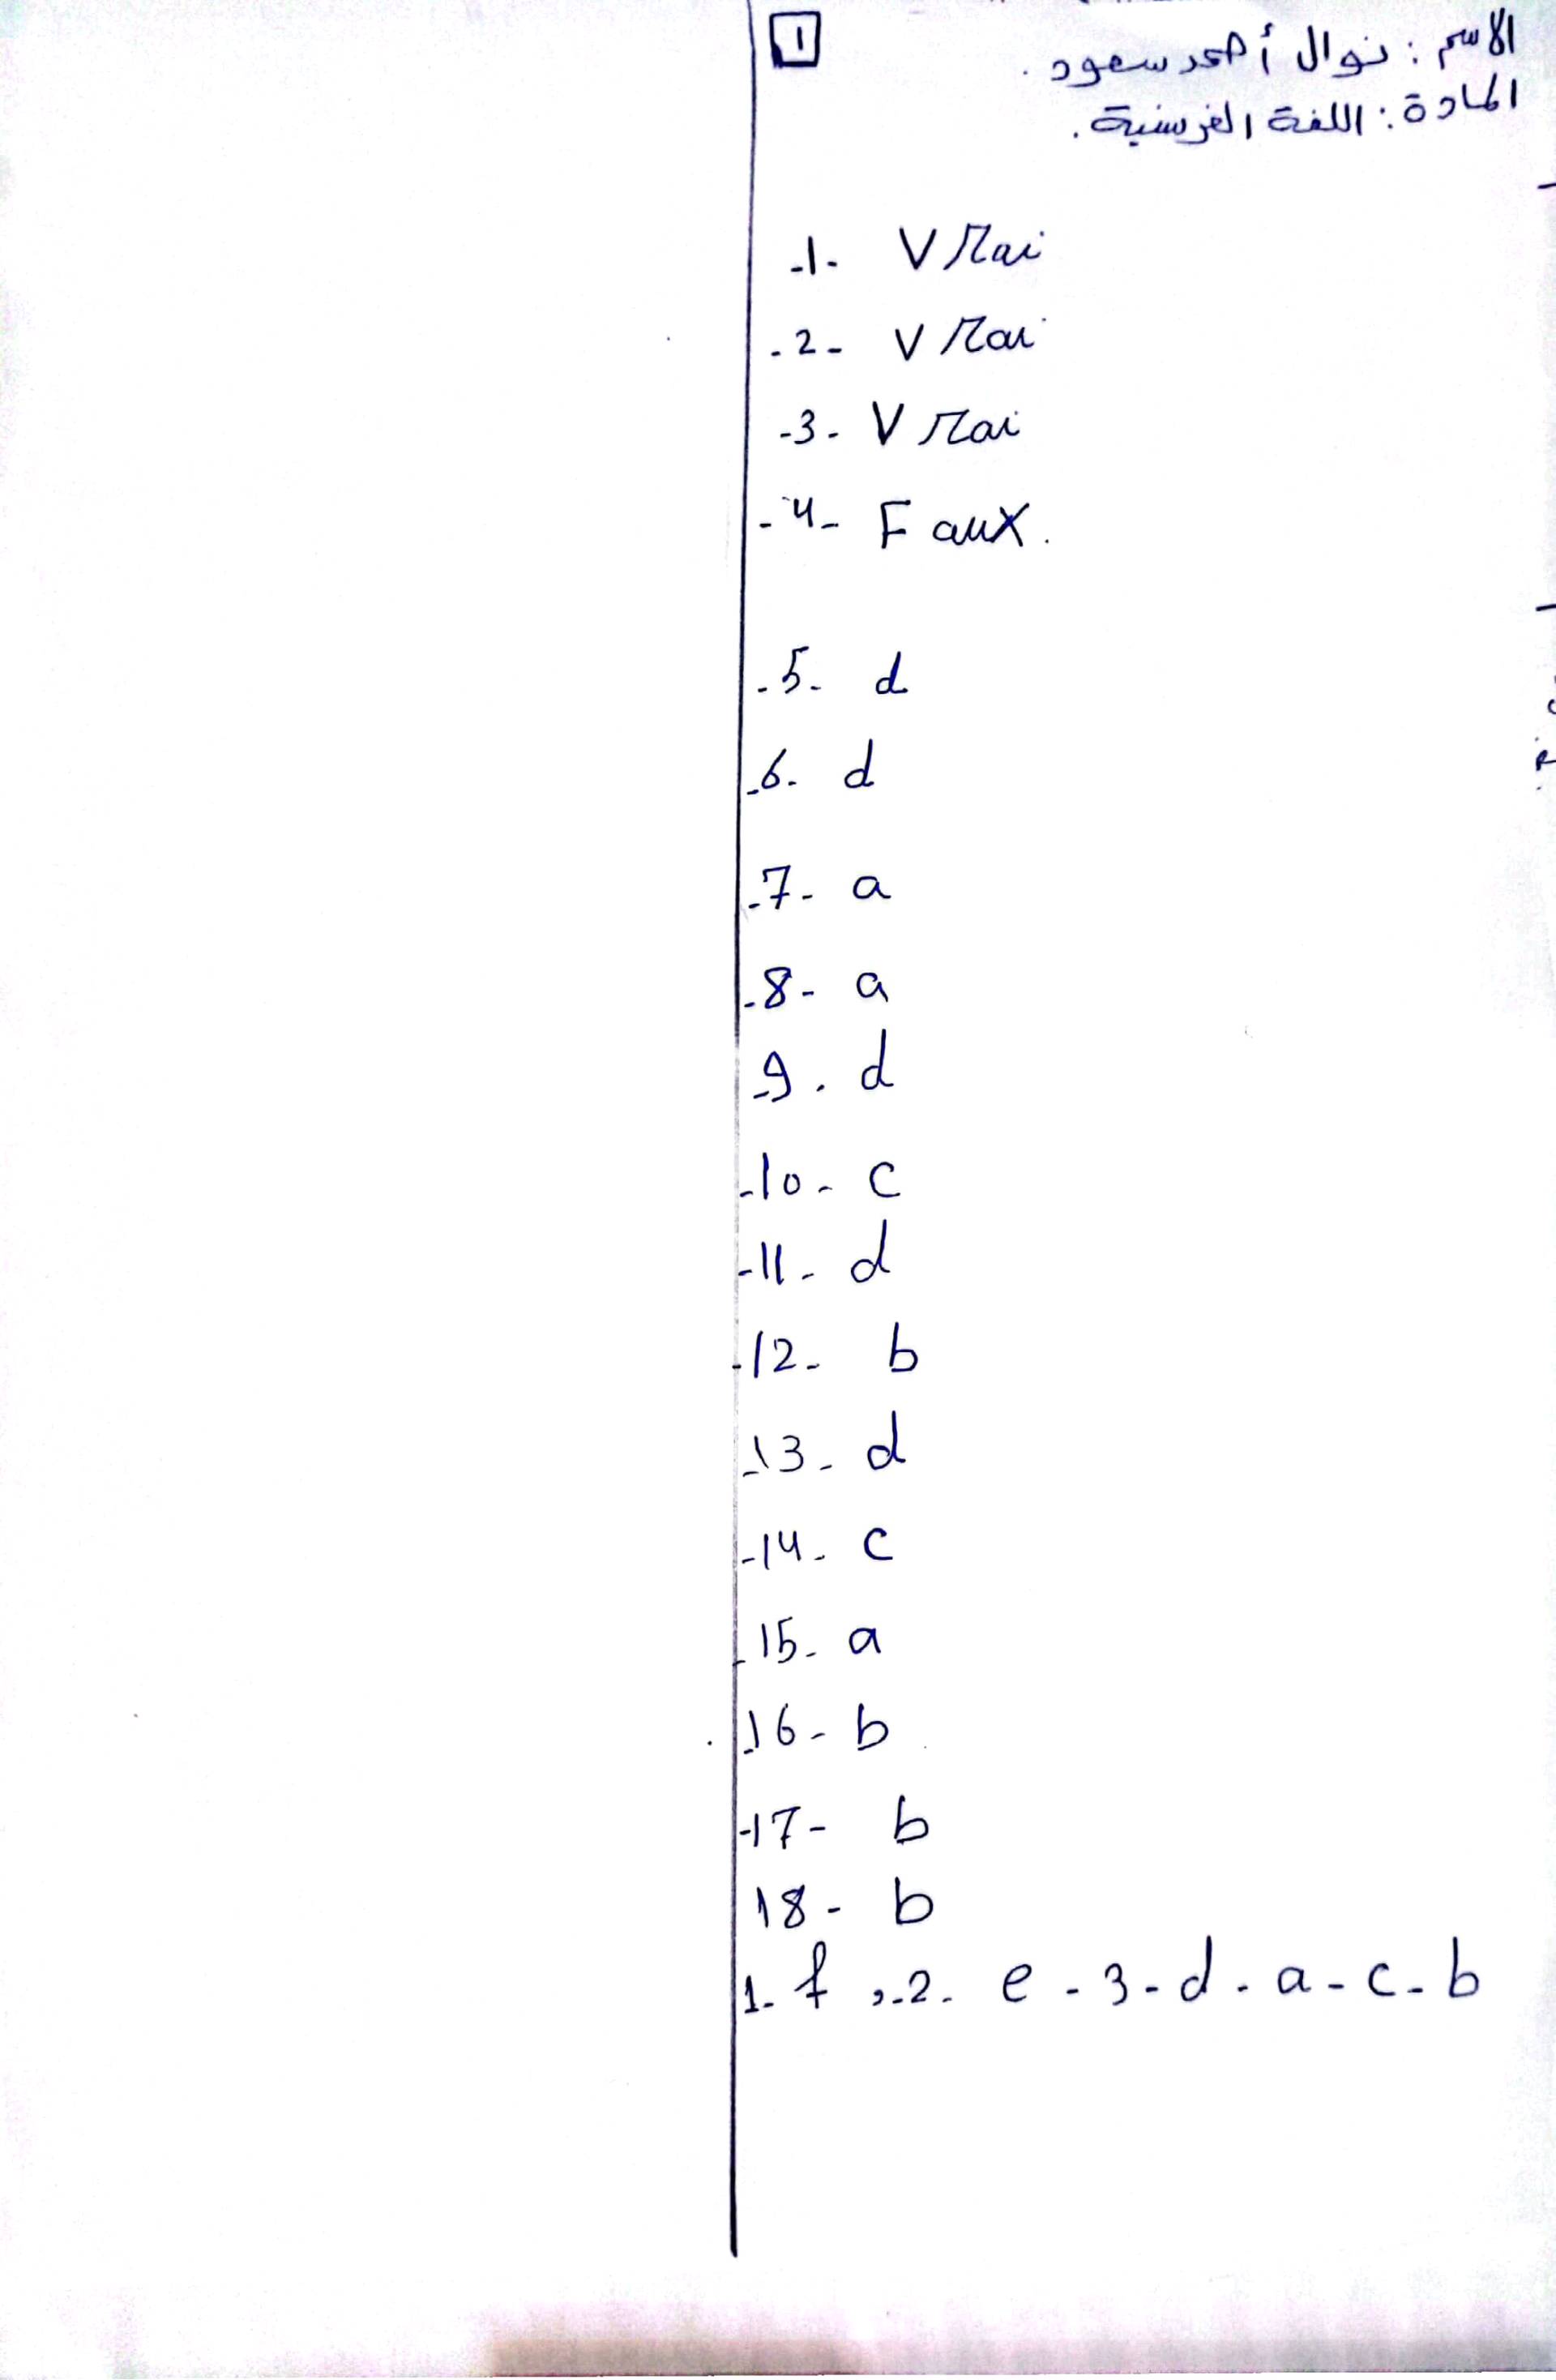 1
الاسم : نوال أحمد سعود .
المادة : اللغة الفرنسية .
-1- Vrai
-2- Vrai
-3- Vrai
-4- Faux.
-5- d
-6- d
-7- a
-8- a
-9. d
-10- c
-11- d
-12- b
-13- d
-14- c
-15- a
-16- b
-17- b
18- b
1- f ,-2- e -3- d - a - c - b